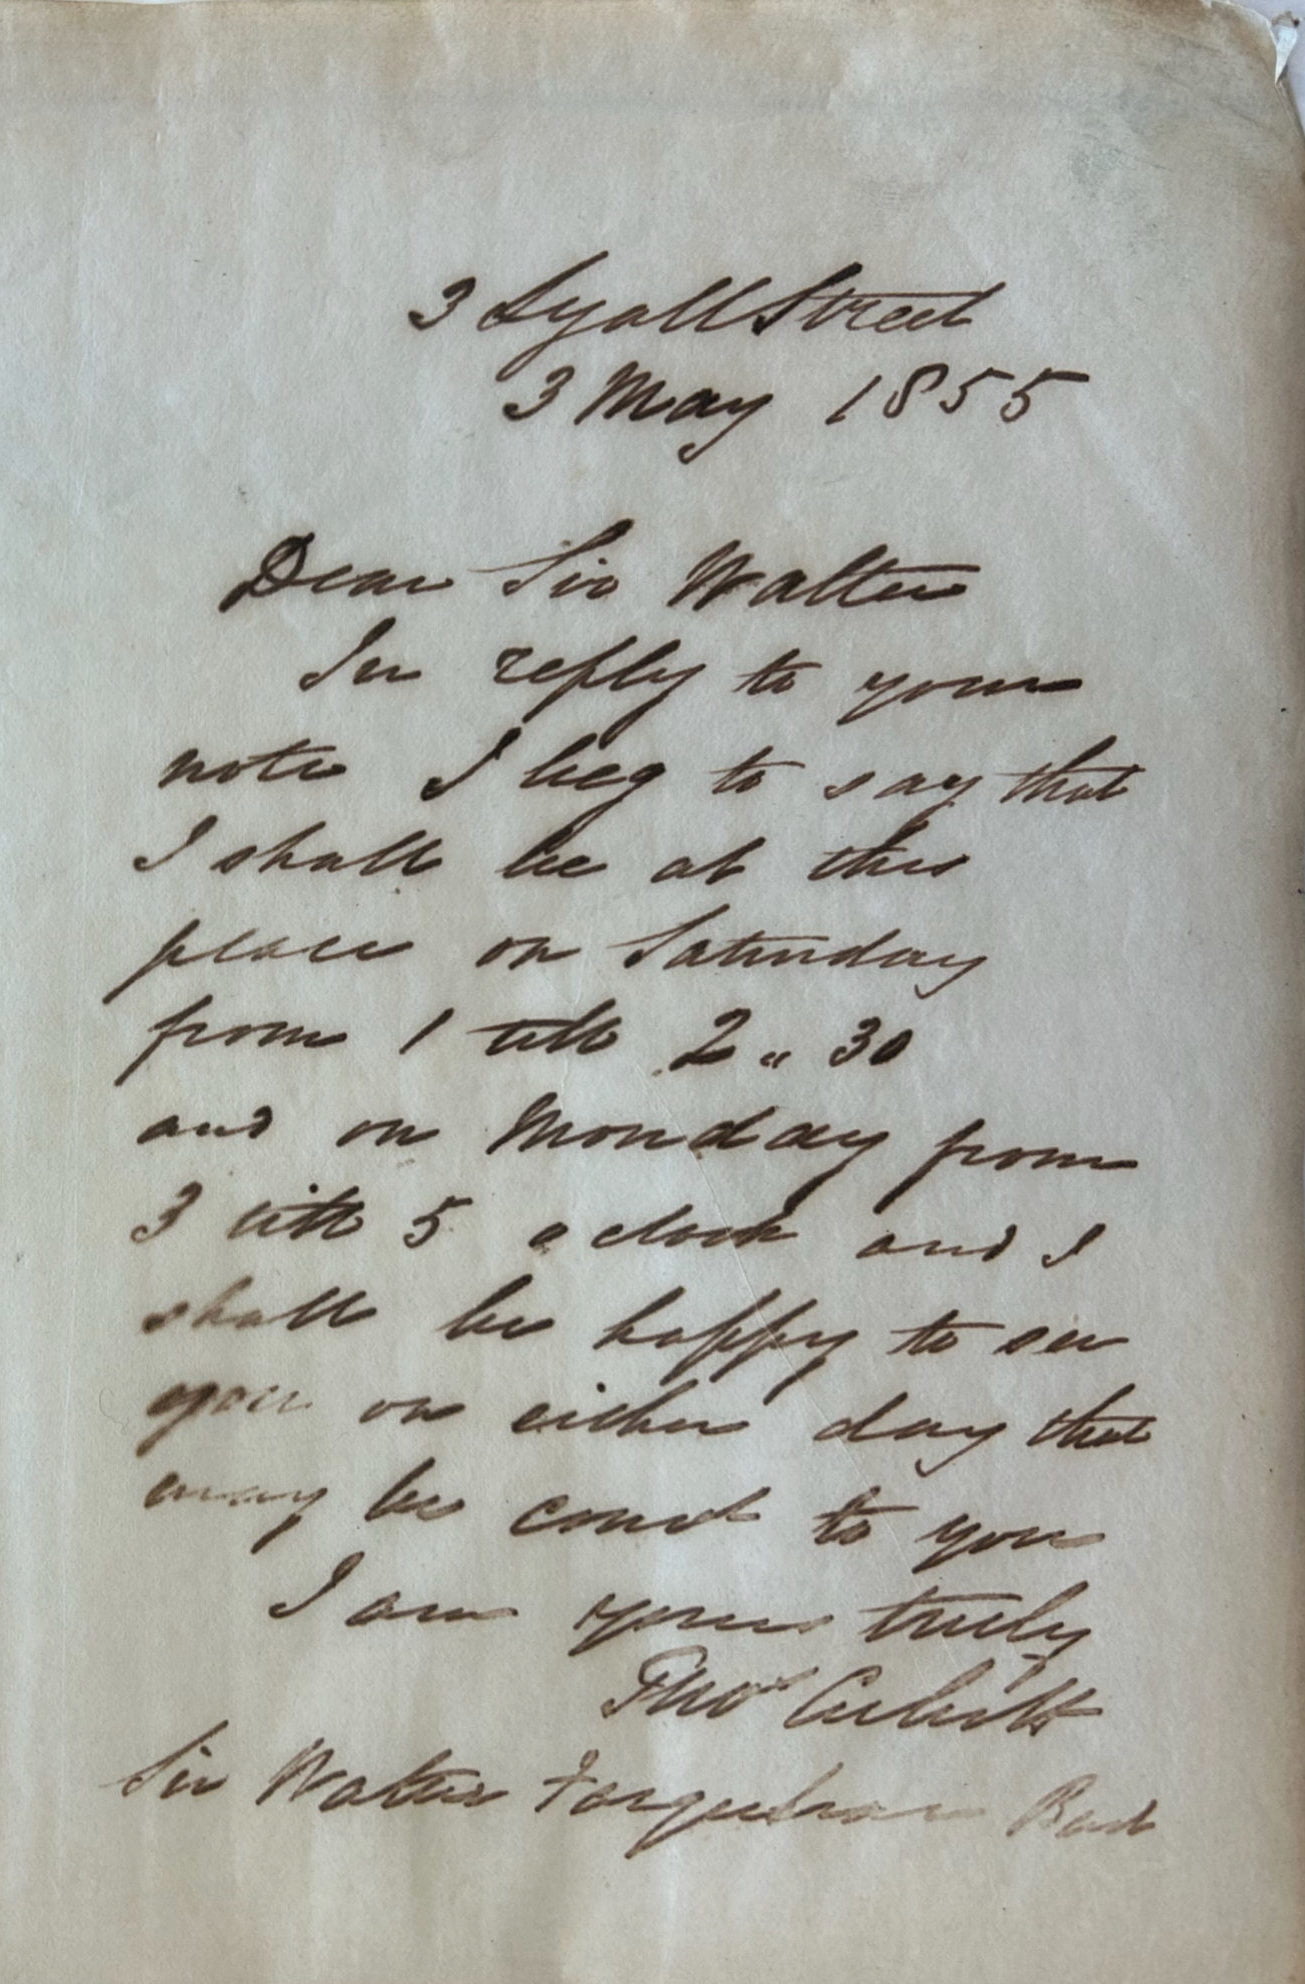 3 Lyall Street
3 May 1855
Dear Sir Walter
In reply to your
note I beg to say that
I shall be at this
place on Saturday
from 1 till 2 " 30
and on Monday from
3 till 5 o clock and I
shall be happy to see
you on either day that
may be cont to you
I am yours truly
Thos Cubitt
Sir Walter Farquhar Bart